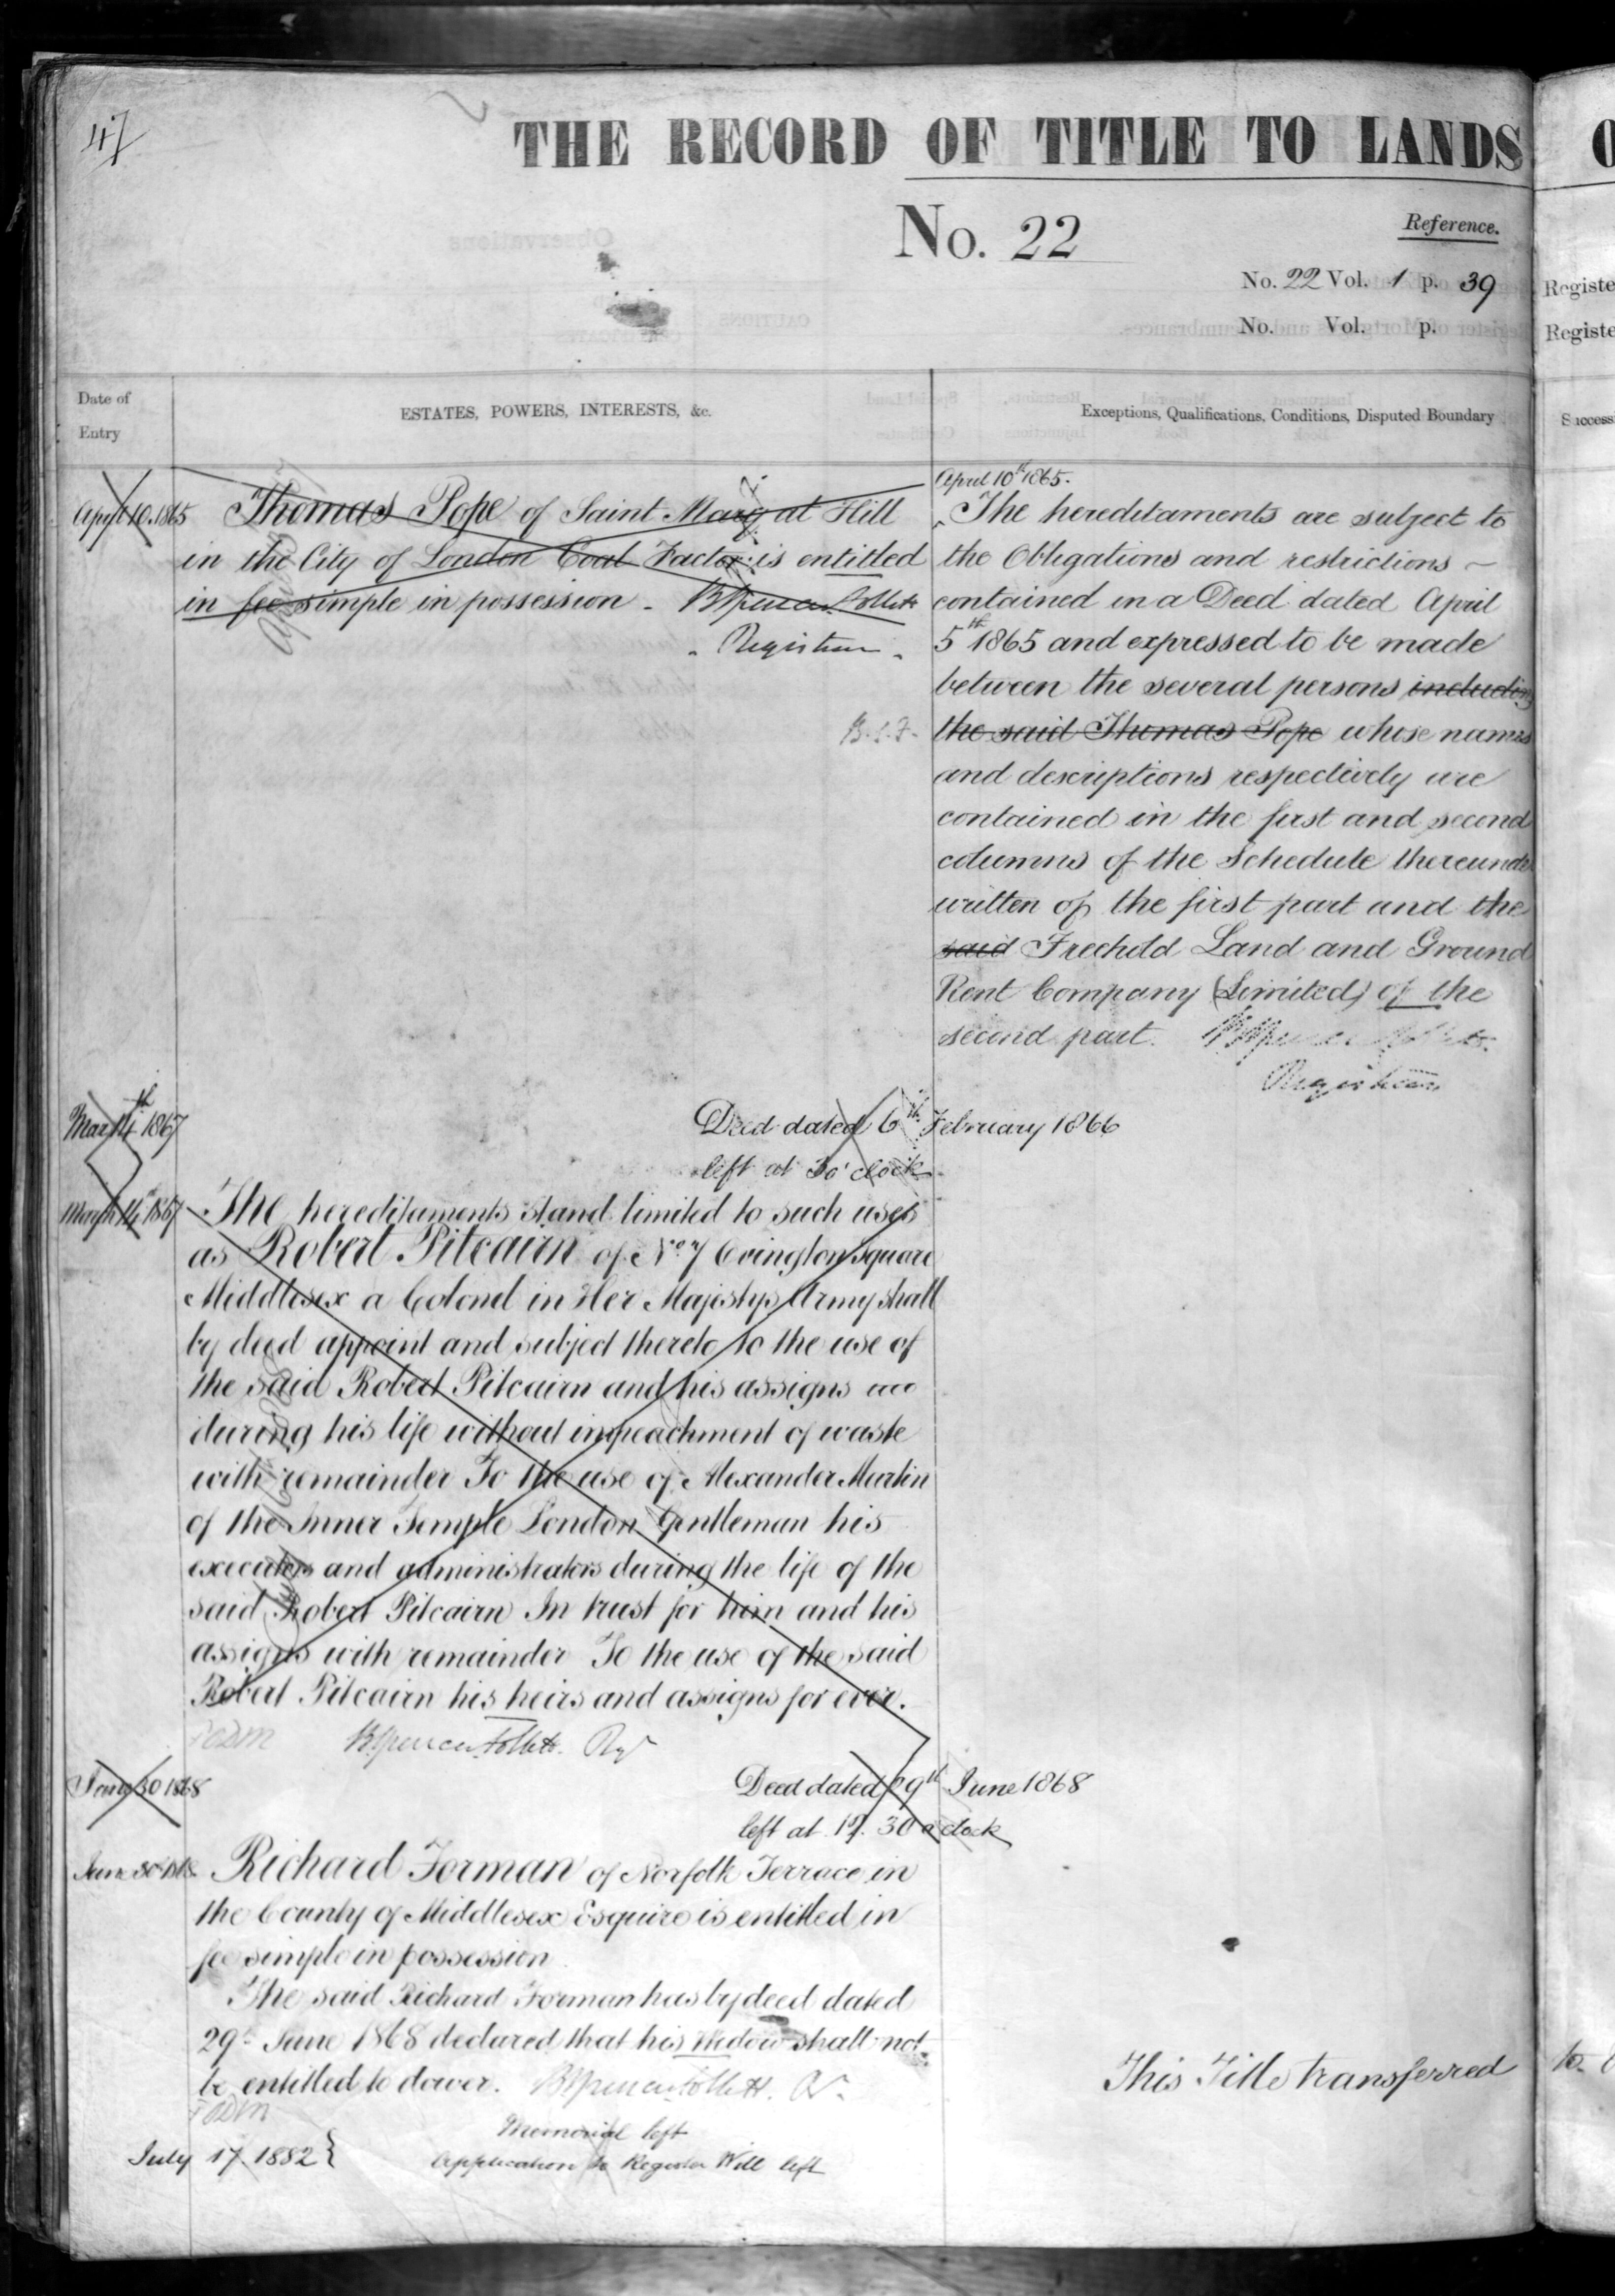 47
THE RECORD OF TITLE TO LANDS
No. 22
Reference.
No. 22 Vol. 1 p. 39
No. Vol. p.
Registe
Registe
Date of
Entry
ESTATES, POWERS, INTERESTS, &c.
Exceptions, Qualifications, Conditions, Disputed Boundary
Success
April 10. 1865
Thomas Pope of Saint Mary at Hill
in the City of London Coal Factor is entitled
in fee simple in possession - B Spencer Follett
Registrar
April 10th 1865.
The hereditaments are subject to
the Obligations and restrictions
contained in a Deed dated April
5th 1865 and expressed to be made
between the several persons including
B.S.F. the said Thomas Pope whose names
and descriptions respectively are
contained in the first and second
columns of the Schedule thereunder
written of the first part and the
said Freehold Land and Ground
Rent Company (Limited) of the
second part. B Spencer Follett
Registrar
Mar 14th 1867
Deed dated 6th February 1866
left at 3 o'clock
March 14th 1867
The hereditaments stand limited to such uses
as Robert Pitcairn of No 7 Ovington Square
Middlesex a Colonel in Her Majestys Army shall
by deed appoint and subject thereto to the use of
the said Robert Pitcairn and his assigns
during his life without impeachment of waste
with remainder To the use of Alexander Martin
of the Inner Temple London Gentleman his
executors and administrators during the life of the
said Robert Pitcairn In trust for him and his
assigns with remainder To the use of the said
Robert Pitcairn his heirs and assigns for ever.
B Spencer Follett. Rgr
June 30 1868
Deed dated 29th June 1868
left at 12. 30 o'clock
June 30th 1868
Richard Forman of Norfolk Terrace in
the County of Middlesex Esquire is entitled in
fee simple in possession
The said Richard Forman has by deed dated
29th June 1868 declared that his Widow shall not
be entitled to dower. B Spencer Follett. Rr
This Title transferred to
Memorial left
July 17 1882 } Application to Register Will left